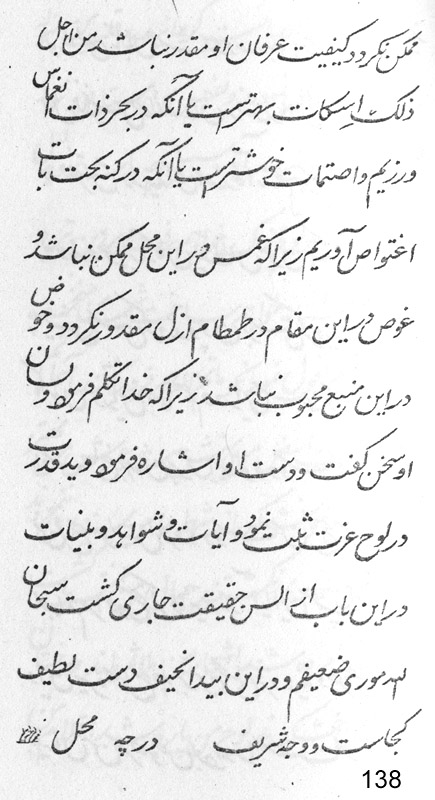 ممکن نکردد کیفیت عرفان او مقدر نباشد من اجل
ذلک اسکات بهتر است یا آنکه در بحر ذات انغماس
ورزیم و اصتمات خوشتر است یا آنکه در کنه بحت بات
اغتواص آوریم زیرا که غمس در این محل ممکن نباشد و
غوص در این مقام در طمطام ازل مقدور نکردد و خوض
در این منبع محبوب نباشد زیرا که خدا تکلم فرمود و لسان
او سخن کفت و دست او اشاره فرمود و ید قدرت
در لوح عزت ثبت نمود و آیات و شواهد و بینات
در این باب از السن حقیقت جاری کشت سبحان
الله موری ضعیفم و در این بیدا نحیف دست لطیف
کجاست و وجه شریف در چه محل
138